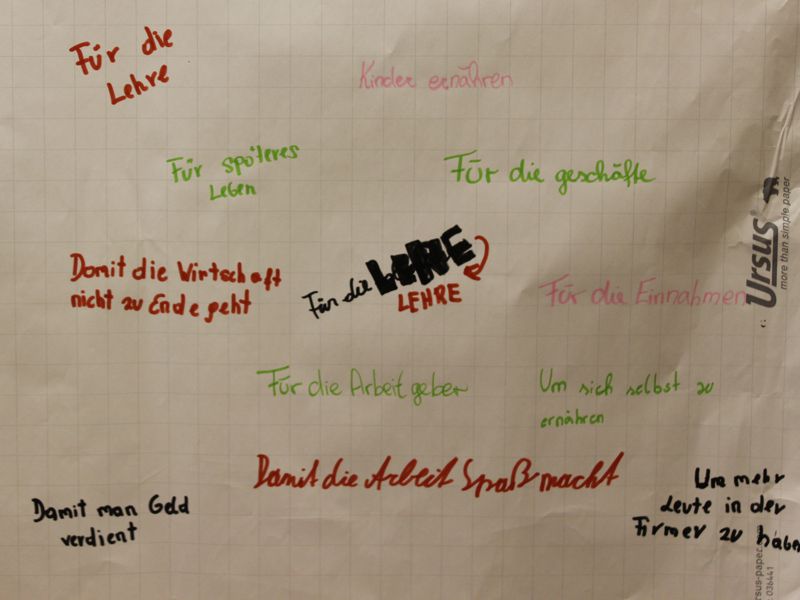 Für die
Lehre
Kinder ernähren
Für späteres
Leben
Für die geschäfte
Damit die Wirtschaft
nicht zu Ende geht
Für die
LEHRE
Für die Einnahmen
Ursus
more than simple paper
Für die Arbeitgeber
Um sich selbst zu
ernähren
Damit die Arbeit Spaß macht
Damit man Geld
verdient
Um mehr
Leute in der
Firmer zu haben
036441